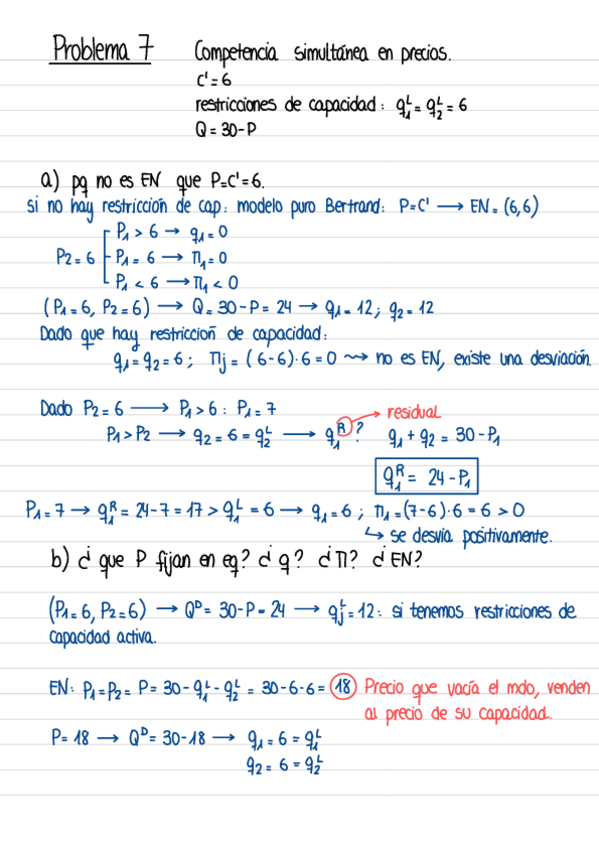 Problema 7 Competencia simultánea en precios.
c' = 6
restricciones de capacidad: q₁ᴸ = q₂ᴸ = 6
Q = 30 - P
a) pq no es EN que P = C' = 6.
si no hay restricción de cap: modelo puro Bertrand: P = C' → EN = (6,6)
P₁ > 6 → q₁ = 0
P₂ = 6 P₁ = 6 → Π₁ = 0
P₁ < 6 → Π₁ < 0
(P₁ = 6, P₂ = 6) → Q = 30 - P = 24 → q₁ = 12; q₂ = 12
Dado que hay restricción de capacidad:
q₁ = q₂ = 6; Πj = (6-6)·6 = 0 ⇝ no es EN, existe una desviación.
Dado P₂ = 6 → P₁ > 6: P₁ = 7 → residual
P₁ > P₂ → q₂ = 6 = q₂ᴸ → q₁ᴿ? q₁ + q₂ = 30 - P₁
q₁ᴿ = 24 - P₁
P₁ = 7 → q₁ᴿ = 24 - 7 = 17 > q₁ᴸ = 6 → q₁ = 6; Π₁ = (7-6)·6 = 6 > 0
↪ se desvía positivamente.
b) ¿que P fijan en eq? ¿q? ¿Π? ¿EN?
(P₁ = 6, P₂ = 6) → Qᴰ = 30 - P = 24 → qjᴸ = 12: si tenemos restricciones de
capacidad activa.
EN: P₁ = P₂ = P = 30 - q₁ᴸ - q₂ᴸ = 30 - 6 - 6 = 18 Precio que vacía el mdo, venden
al precio de su capacidad.
P = 18 → Qᴰ = 30 - 18 → q₁ = 6 = q₁ᴸ
q₂ = 6 = q₂ᴸ